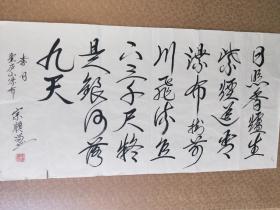 日照香爐生
紫煙遥看
瀑布掛前
川飛流直
下三千尺疑
是銀河落
九天
李白
望庐山瀑布